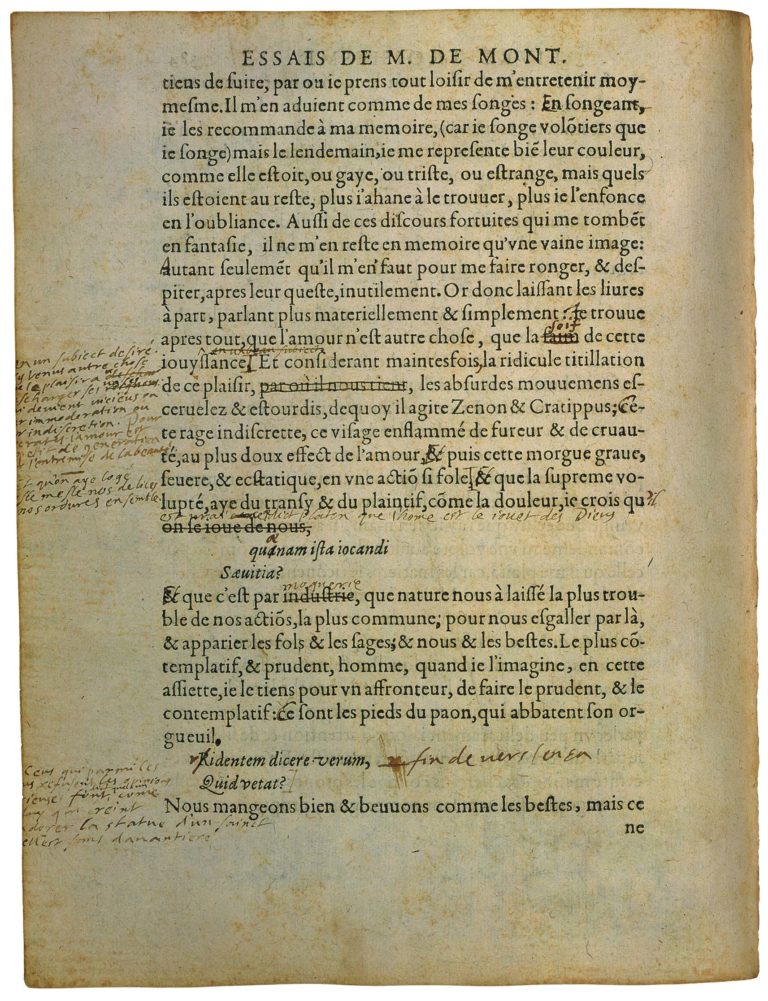 ESSAIS DE M. DE MONT.
tiens de ſuite, par ou ie prens tout loiſir de m'entretenir moy-
meſme. Il m'en aduient comme de mes ſonges: En ſongeant,
ie les recommande à ma memoire, (car ie ſonge volõtiers que
ie ſonge) mais le lendemain, ie me repreſente biẽ leur couleur,
comme elle eſtoit, ou gaye, ou triſte, ou eſtrange, mais quels
ils eſtoient au reſte, plus i'ahane à le trouuer, plus ie l'enfonce
en l'oubliance. Auſſi de ces diſcours fortuites qui me tombẽt
en fantaſie, il ne m'en reſte en memoire qu'vne vaine image:
Autant ſeulemẽt qu'il m'en faut pour me faire ronger, & deſ-
piter, apres leur queſte, inutilement. Or donc laiſſant les liures
à part, parlant plus materiellement & ſimplement: Ie trouue
ſoif
apres tout, que l'amour n'eſt autre choſe, que la faim de cette
iouyſſance. Et conſiderant maintesfois, la ridicule titillation
en un subiect desiré
Venus autre chose
de ce plaiſir, par où il nous tient, les abſurdes mouuemens eſ-
ceruelez & eſtourdis, dequoy il agite Zenon & Cratippus; Ce-
immoderation ou
indiscretion. Pour
te rage indiſcrette, ce viſage enflammé de fureur & de cruau-
l'entremise de la beauté
té, au plus doux effect de l'amour, & puis cette morgue graue,
ſeuere, & ecſtatique, en vne actiõ ſi fole, & que la ſupreme vo-
nos ordures ensemble
lupté, aye du tranſy & du plaintif, cõme la douleur, ie crois qu'il
est que l'home est le iouet des Dieus
on ſe ioue de nous,
quænam iſta iocandi
Sæuitia?
moquerie
Et que c'eſt par induſtrie, que nature nous à laiſſé la plus trou-
ble de nos actiõs, la plus commune; pour nous eſgaller par là,
& apparier les fols & les ſages; & nous & les beſtes. Le plus cõ-
templatif, & prudent, homme, quand ie l'imagine, en cette
aſſiette, ie le tiens pour vn affronteur, de faire le prudent, & le
contemplatif: Ce ſont les pieds du paon, qui abbatent ſon or-
gueuil.
Ridentem dicere verum, fin de vers
Quid vetat?
Ceus qui parmi les
la statue d'un sainct
Nous mangeons bien & beuuons comme les beſtes, mais ce
ne